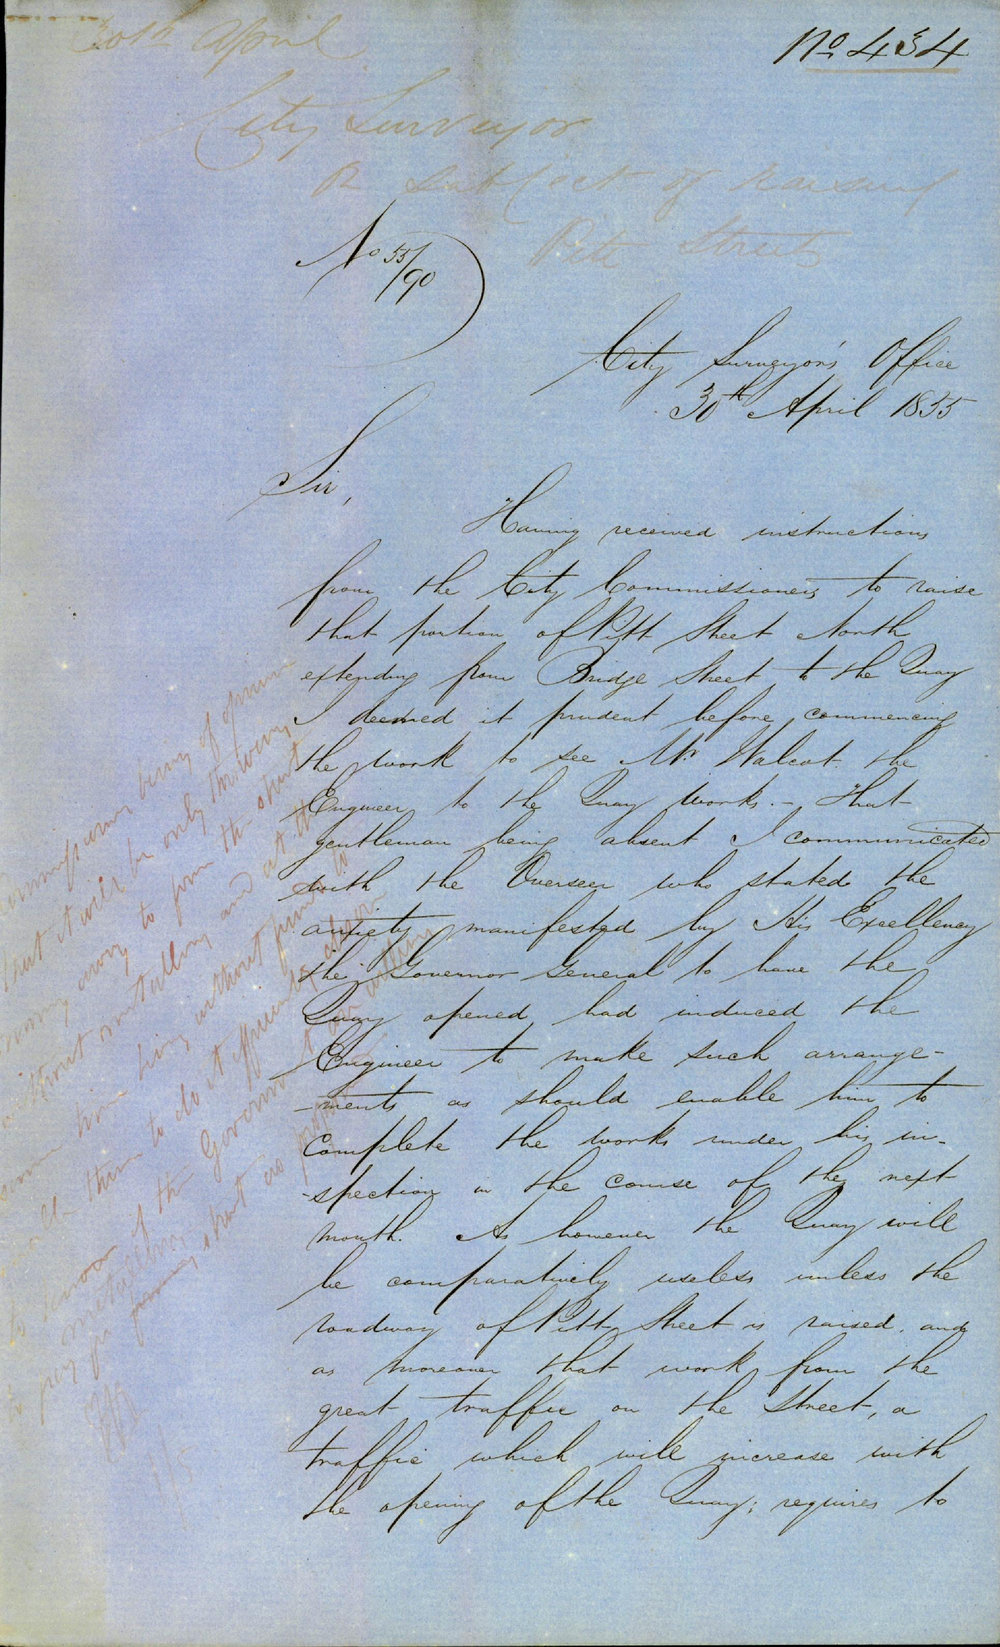 No 434
30th April
City Surveyor
R subject of raising
Pitt Street
No 55/90
City Surveyor's Office
30th April 1855
Sir,
Having received instructions
from the City Commissioners to raise
that portion of Pitt Street North
extending from Bridge Street to the Quay
I deemed it prudent before commencing
the work to see Mr Walcot the
Engineer to the Quay Works. - That
gentleman being absent I communicated
with the Overseer who stated the
anxiety manifested by His Excellency
the Governor General to have the
Quay opened had induced the
Engineer to make such arrange-
-ments as should enable him to
complete the works under his in-
-spection in the course of the next
month. As however the Quay will
be comparatively useless unless the
roadway of Pitt Street is raised, and
as moreover that work from the
great traffic on the Street, a
traffic which will increase with
the opening of the Quay; requires to
being of opinion
that it will be only throwing
money away to form the street
without metalling and at the
same time being without funds to
them to do it
the Governor
metalling
to pay for